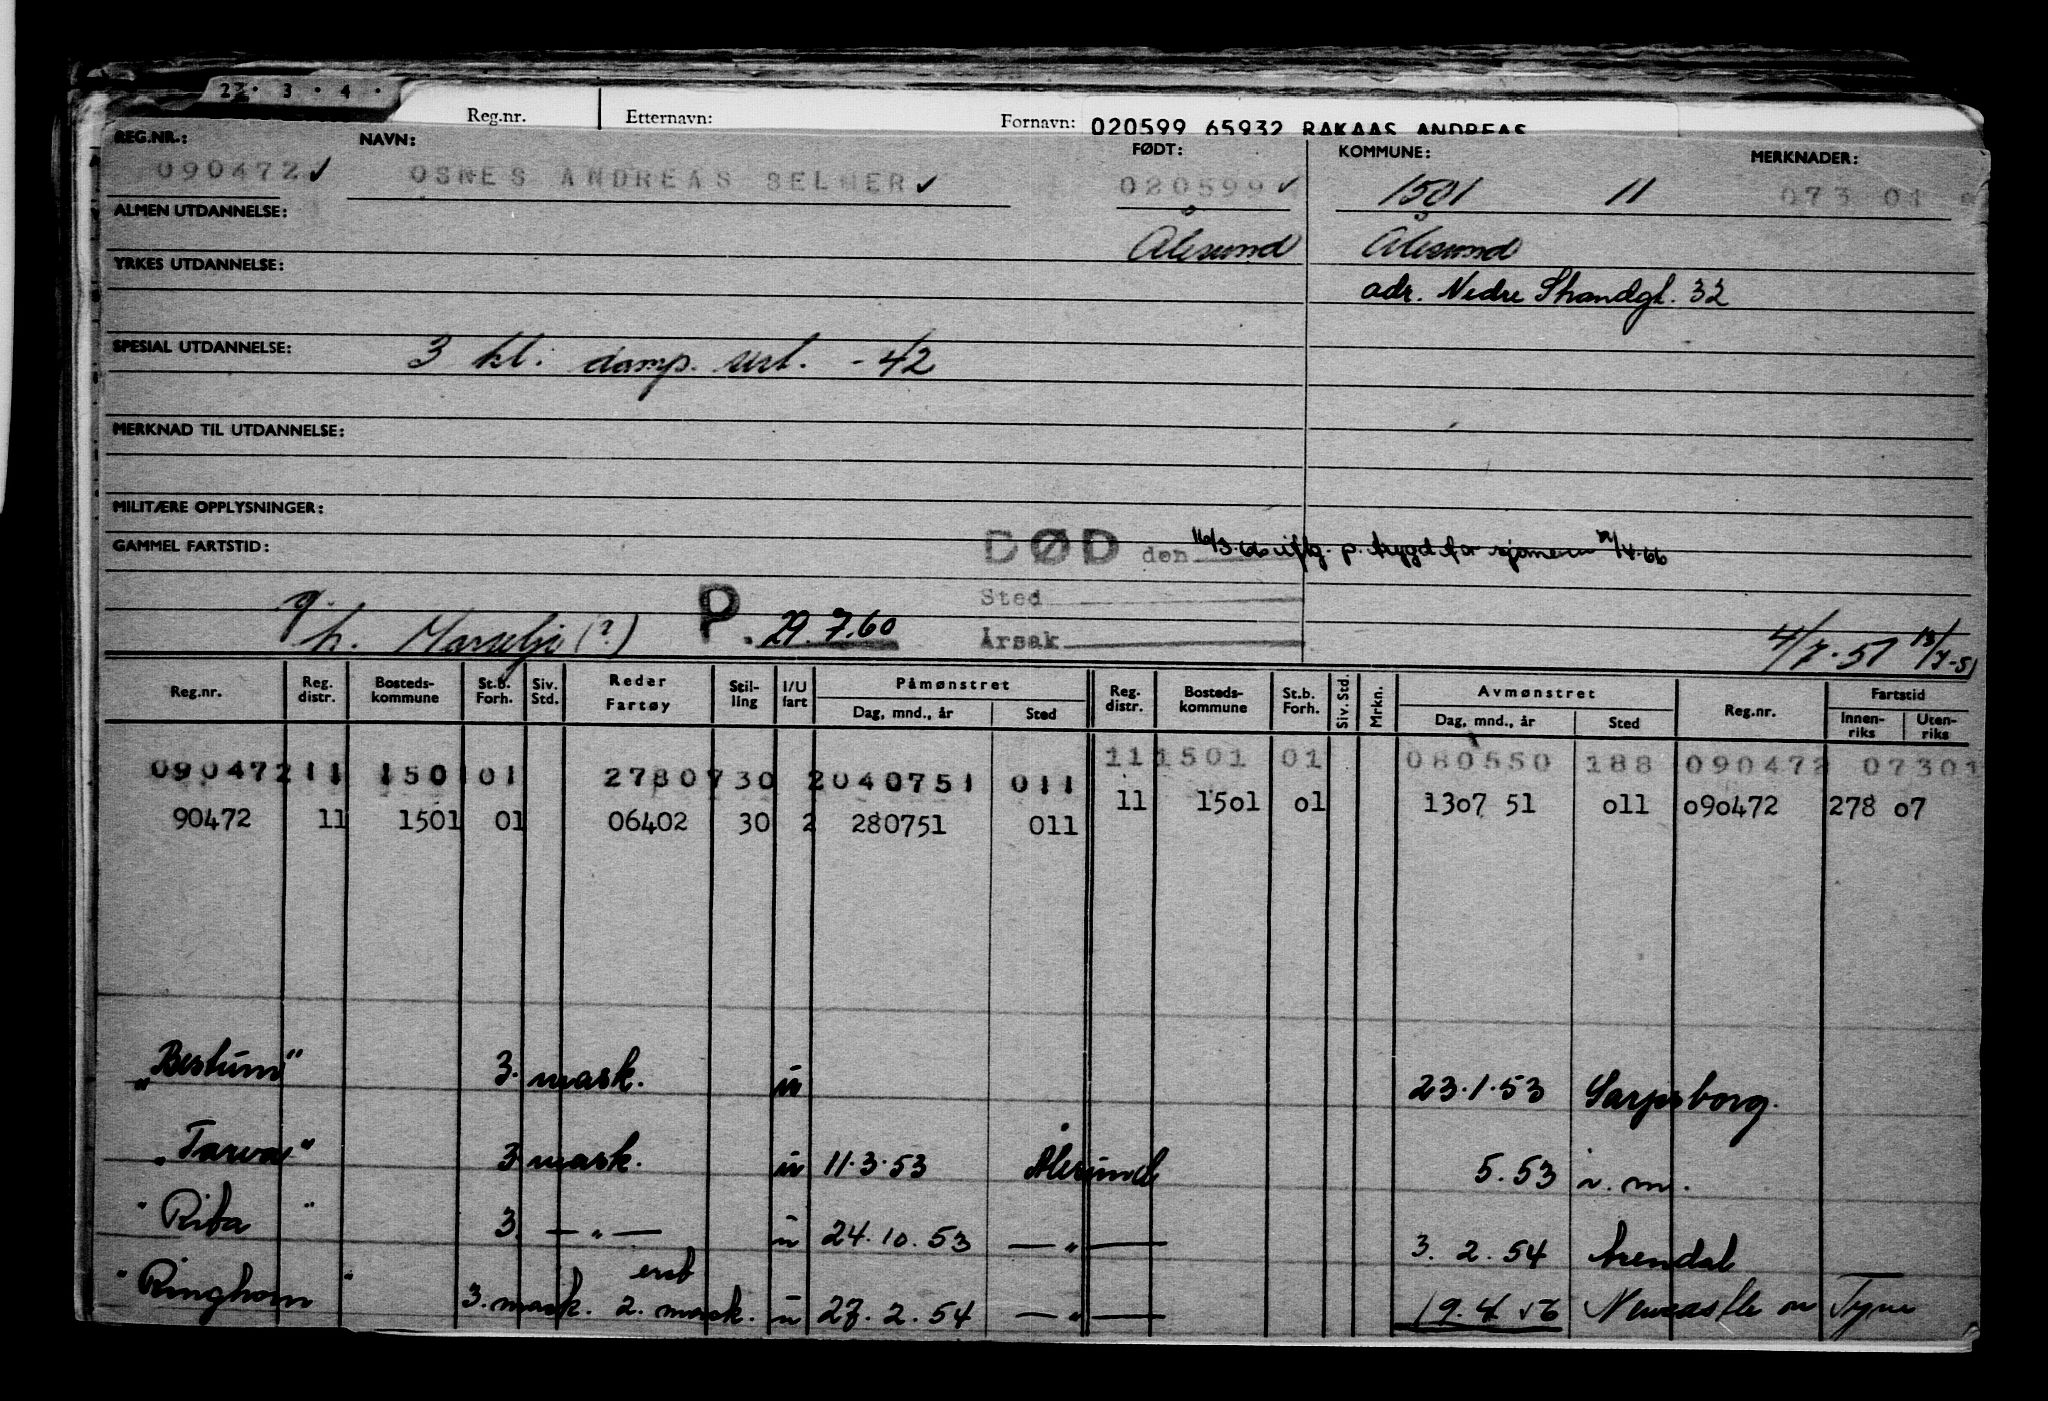 22 · 3 · 4 ·
Reg.nr. Etternavn: Fornavn: 020599 65932 RAKAAS ANDREAS
REG.NR.: NAVN: FØDT: KOMMUNE: MERKNADER:
090472 ✓ OSNES ANDREAS SELMER ✓ 020599 ✓ 1501 11 073 01
ALMEN UTDANNELSE:
Ålesund Ålesund
YRKES UTDANNELSE:
adr. Nedre Strandgt. 32
SPESIAL UTDANNELSE: 3 kl. damp. sert. - 42
MERKNAD TIL UTDANNELSE:
MILITÆRE OPPLYSNINGER:
GAMMEL FARTSTID: DØD den 16/3.66 iflg. p. trygd for sjømenn /4.66
Sted
h. (?) P. 29.7.60 Årsak 4/7.51 13/7-51
Reg.nr. Reg. distr. Bosteds-kommune St.b. Forh. Siv. Std. Reder Fartøy Stil-ling I/U fart Påmønstret Dag, mnd., år Sted Reg. distr. Bosteds-kommune St.b. Forh. Siv. Std. Mrkn. Avmønstret Dag, mnd., år Sted Reg.nr. Fartstid Innen-riks Uten-riks
11 1501 01 080550 188 090472 07301
090472 11 1501 01 27807 30 2 040751 011
11 1501 01 1307 51 011 090472 278 07
90472 11 1501 01 06402 30 2 280751 011
"Bestum" 3. mask. u 23.1.53 Sarpsborg.
"Tarva" 3 mask. u 11.3.53 Ålesund 5.53 i.m.
"Rita" 3. — " — u 24.10.53 — " — 3. 2. 54 Arendal
"Ringhorn" 3. mask. erst 2. mask. u 27. 2. 54 — " — 19.4.56 Newcastle on Tyne